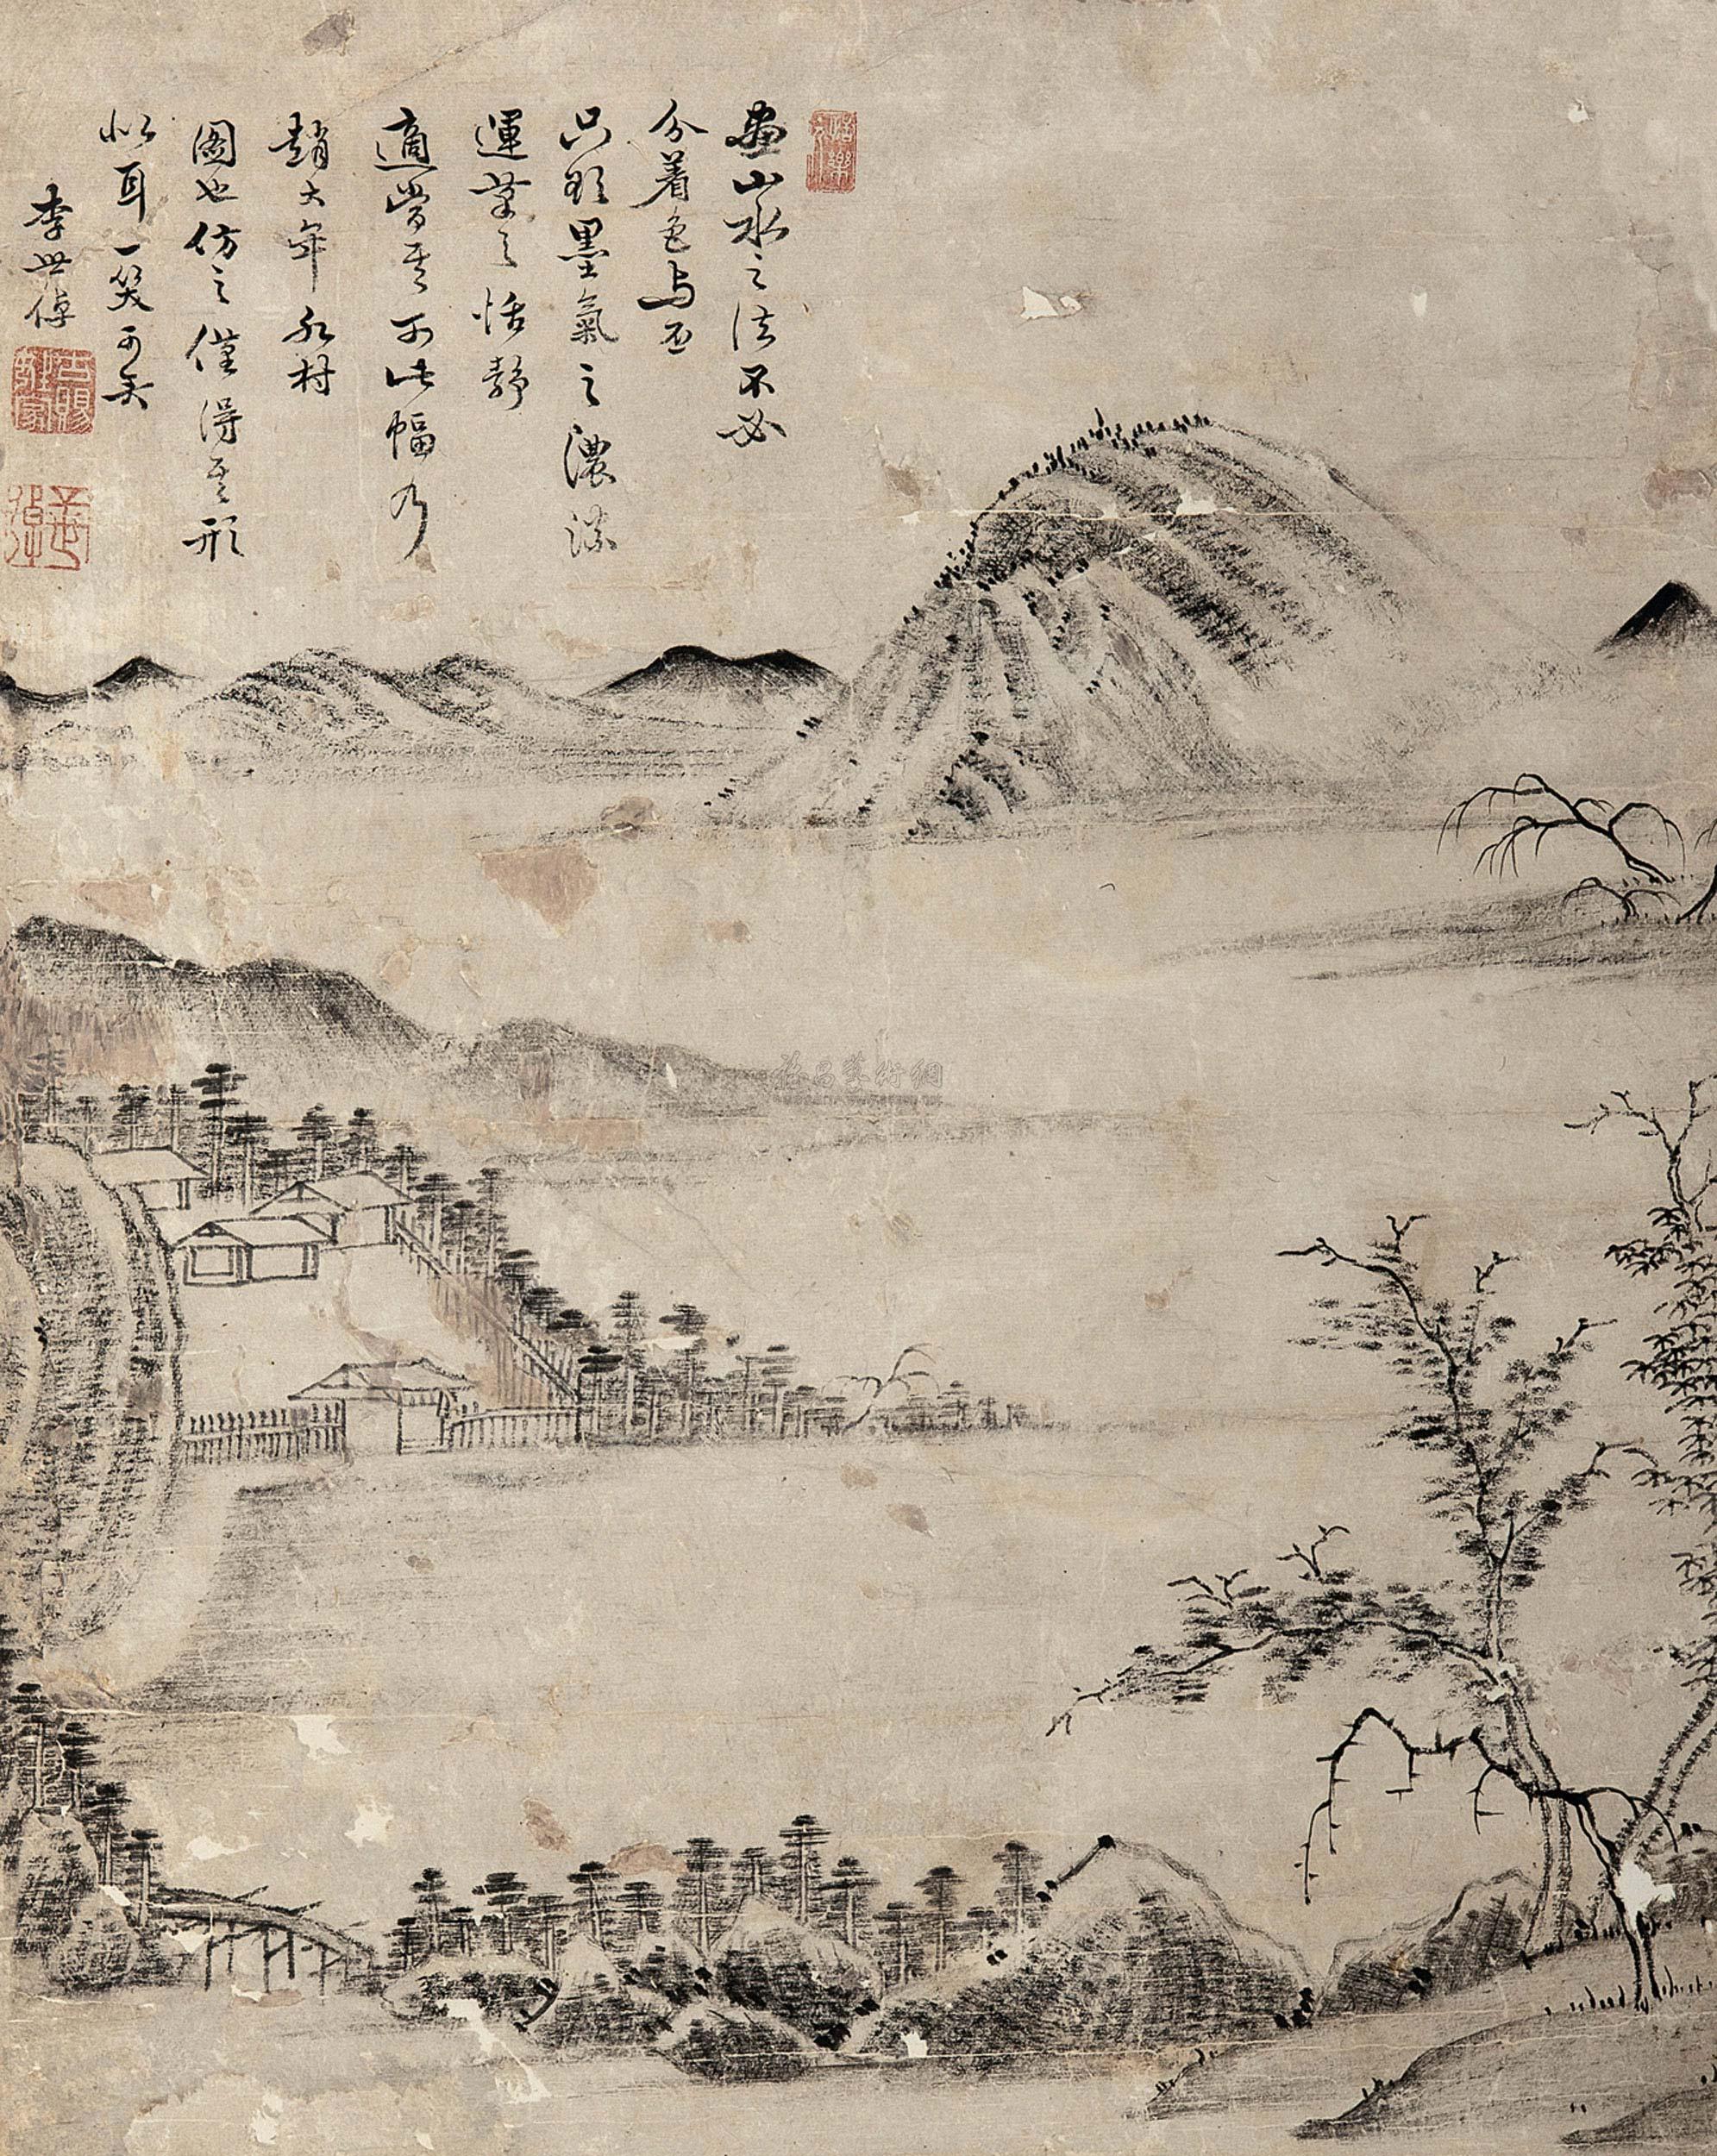 畫山水之法不必
分着色与否
只墨氣之濃淡
運筆之恬靜
適當其可此幅乃
趙大年水村
圖也仿之僅得其形
似耳一笑可矣
李世倬